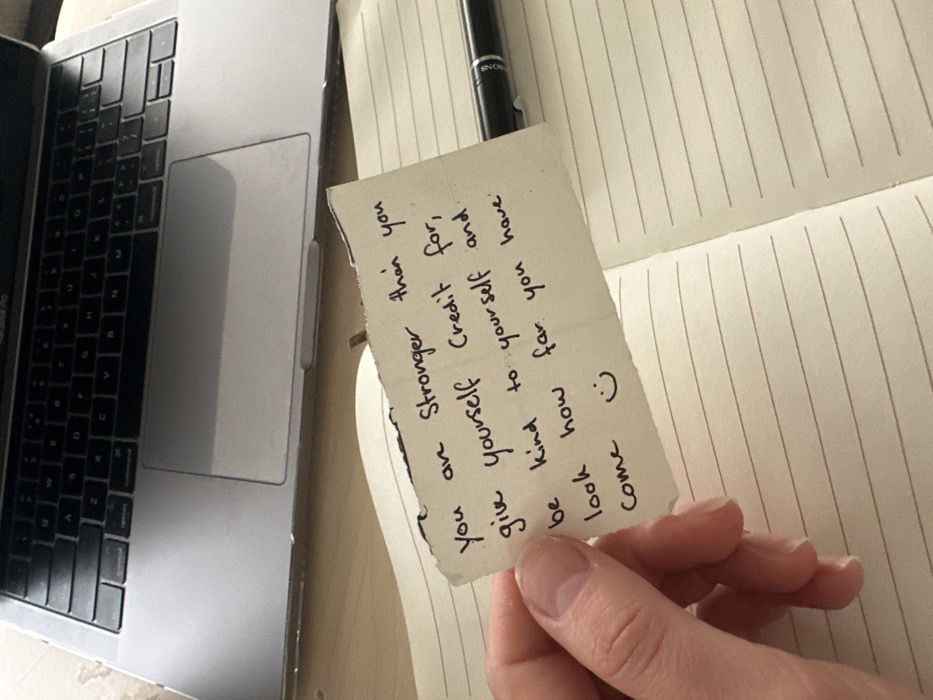 You are Stronger than you
give yourself credit for,
be kind to yourself and
look how far you have
come :)